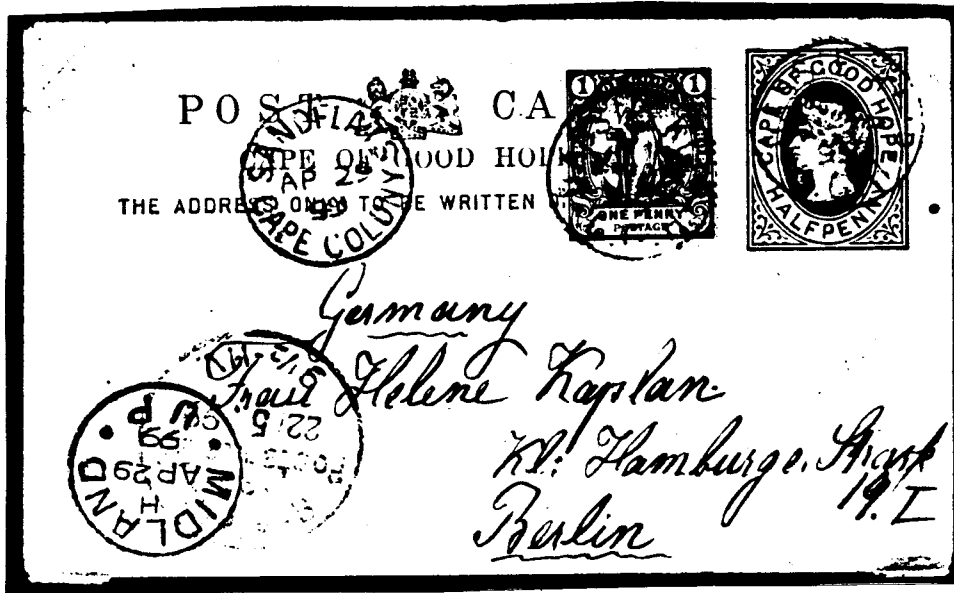 POST CA
CAPE OF GOOD HOPE
THE ADDRESS ONLY TO BE WRITTEN
SANDFLATS
AP 29
99
CAPE COLONY
1 1
ONE PENNY
POSTAGE
CAPE OF GOOD HOPE
HALFPENNY
Germany
Frau Helene Kaplan
Kl: Hamburge. 
19. I
Berlin
22
5
MIDLAND
H
AP 29
99
UP